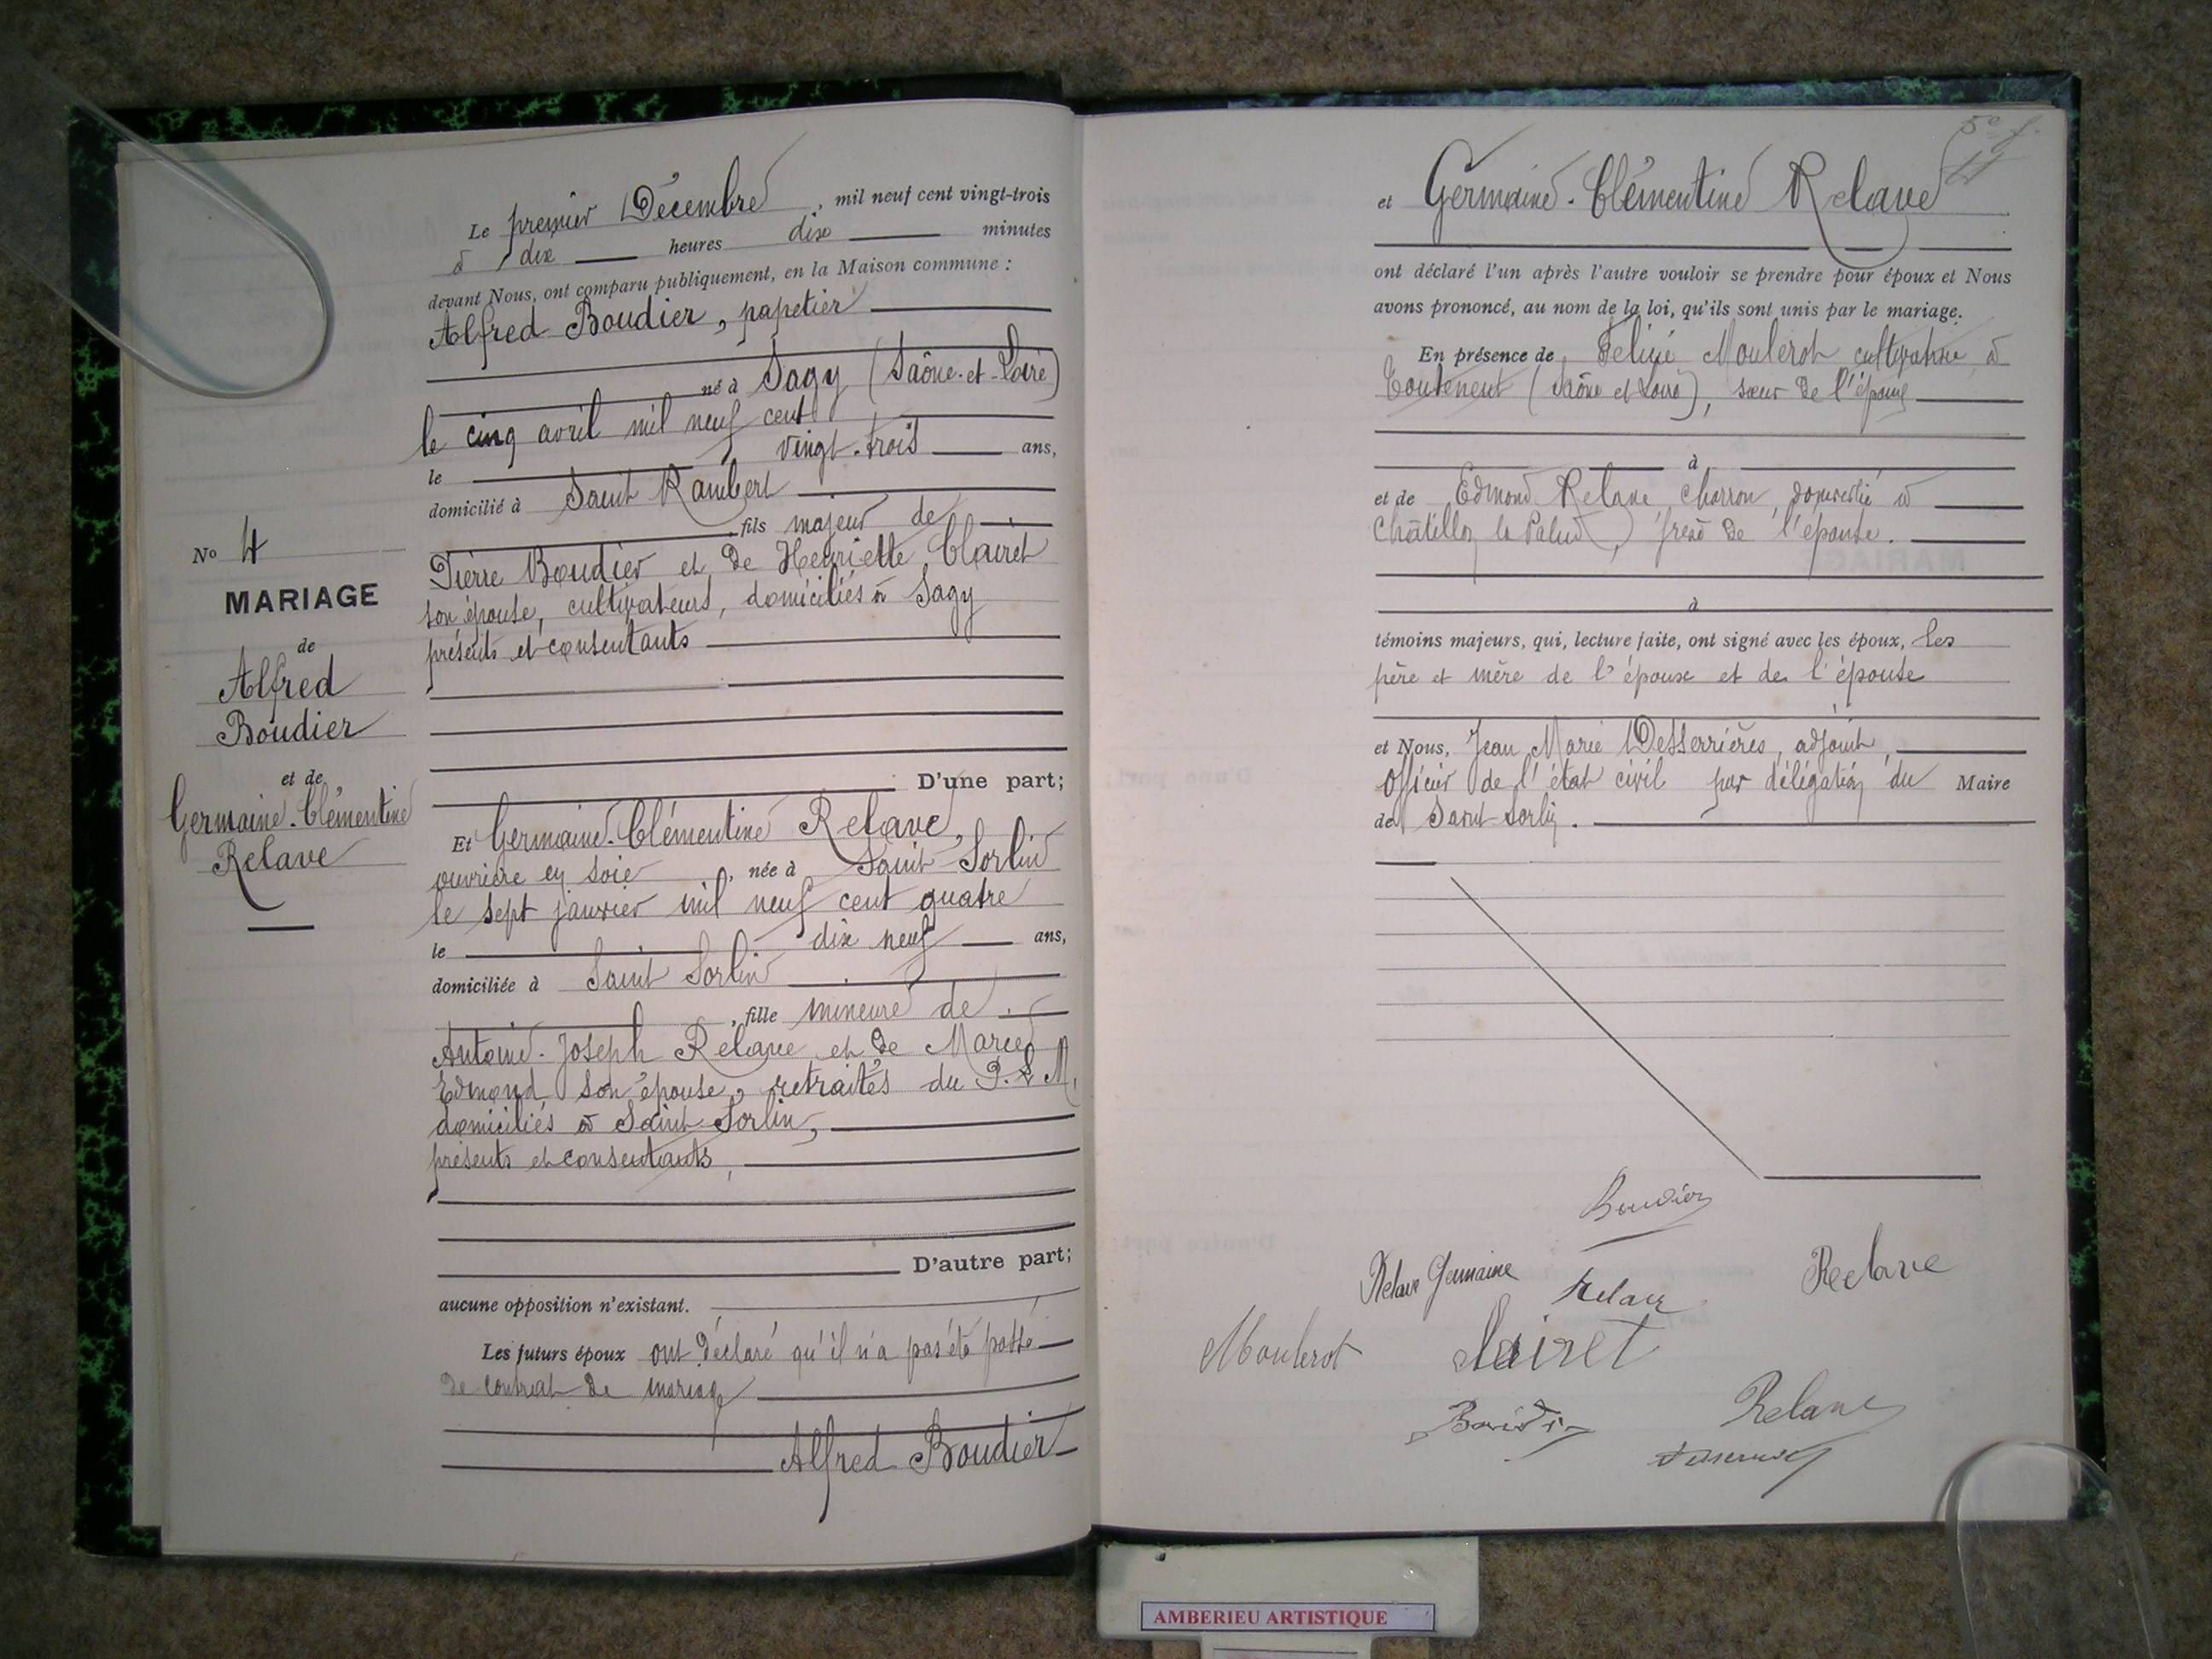 Le premier Décembre, mil neuf cent vingt-trois
à dix heures dix minutes
devant Nous, ont comparu publiquement, en la Maison commune :
Alfred Boudier, papetier
né à Sagy (Saône-et-Loire)
le cinq avril mil neuf cent
le vingt-trois ans,
domicilié à Saint Rambert
fils majeur de
Pierre Boudier et de Henriette Clairet
son épouse, cultivateurs, domiciliés à Sagy
présents et consentants
D'une part;
Et Germaine-Clémentine Relave,
ouvrière en soie, née à Saint-Sorlin
le sept janvier mil neuf cent quatre
le dix neuf ans,
domiciliée à Saint Sorlin
, fille mineure de
Antoine-Joseph Relave et de Marie
Edmond son épouse, retraités du P.L.M,
domiciliés à Saint-Sorlin,
présents et consentants,
D'autre part;
aucune opposition n'existant.
Les futurs époux ont déclaré qu'il n'a pas été passé
de contrat de mariage
Alfred Boudier
No 4
MARIAGE
de
Alfred
Boudier
et de
Germaine-Clémentine
Relave
et Germaine-Clémentine Relave
ont déclaré l'un après l'autre vouloir se prendre pour époux et Nous
avons prononcé, au nom de la loi, qu'ils sont unis par le mariage.
En présence de Moulerot cultivatrice à
Toutenent (Saône et Loire), sœur de l'époux
à
et de Edmond Relave, charron, domicilié à
Châtillon la Palud, frère de l'épouse.
à
témoins majeurs, qui, lecture faite, ont signé avec les époux, les
père et mère de l'époux et de l'épouse
et Nous, Jean Marie Desserrières, adjoint,
Officier de l'état civil par délégation du Maire
de Saint-Sorlin.
Boudier
Relave Germaine
Relave
Relave
Moulerot
Clairet
Boudier
Relave
AMBERIEU ARTISTIQUE